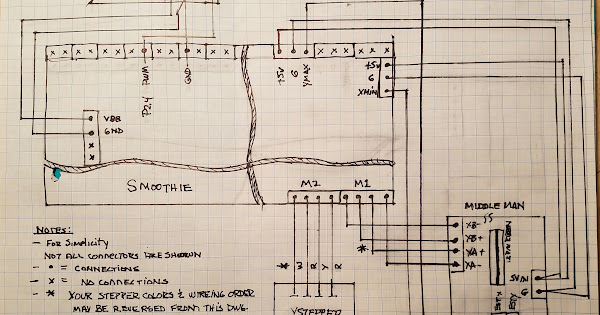 x x x x x x x x x x x x x x x x x x x x
P2.4 PWM
GND
+5V
G
YMAX
+5V
G
XMIN
VBB
GND
x
x
SMOOTHIE
M2
M1
MIDDLE MAN
J5
XB-
XB+
XA+
XA-
*
* W R Y R
5VIN
G
YSTEPPER
NOTES:
- FOR SIMPLICITY
NOT ALL CONNECTORS ARE SHOWN
- • = CONNECTIONS
- x = NO CONNECTIONS
- * YOUR STEPPER COLORS & WIREING ORDER
MAY BE REVERSED FROM THIS DWG.